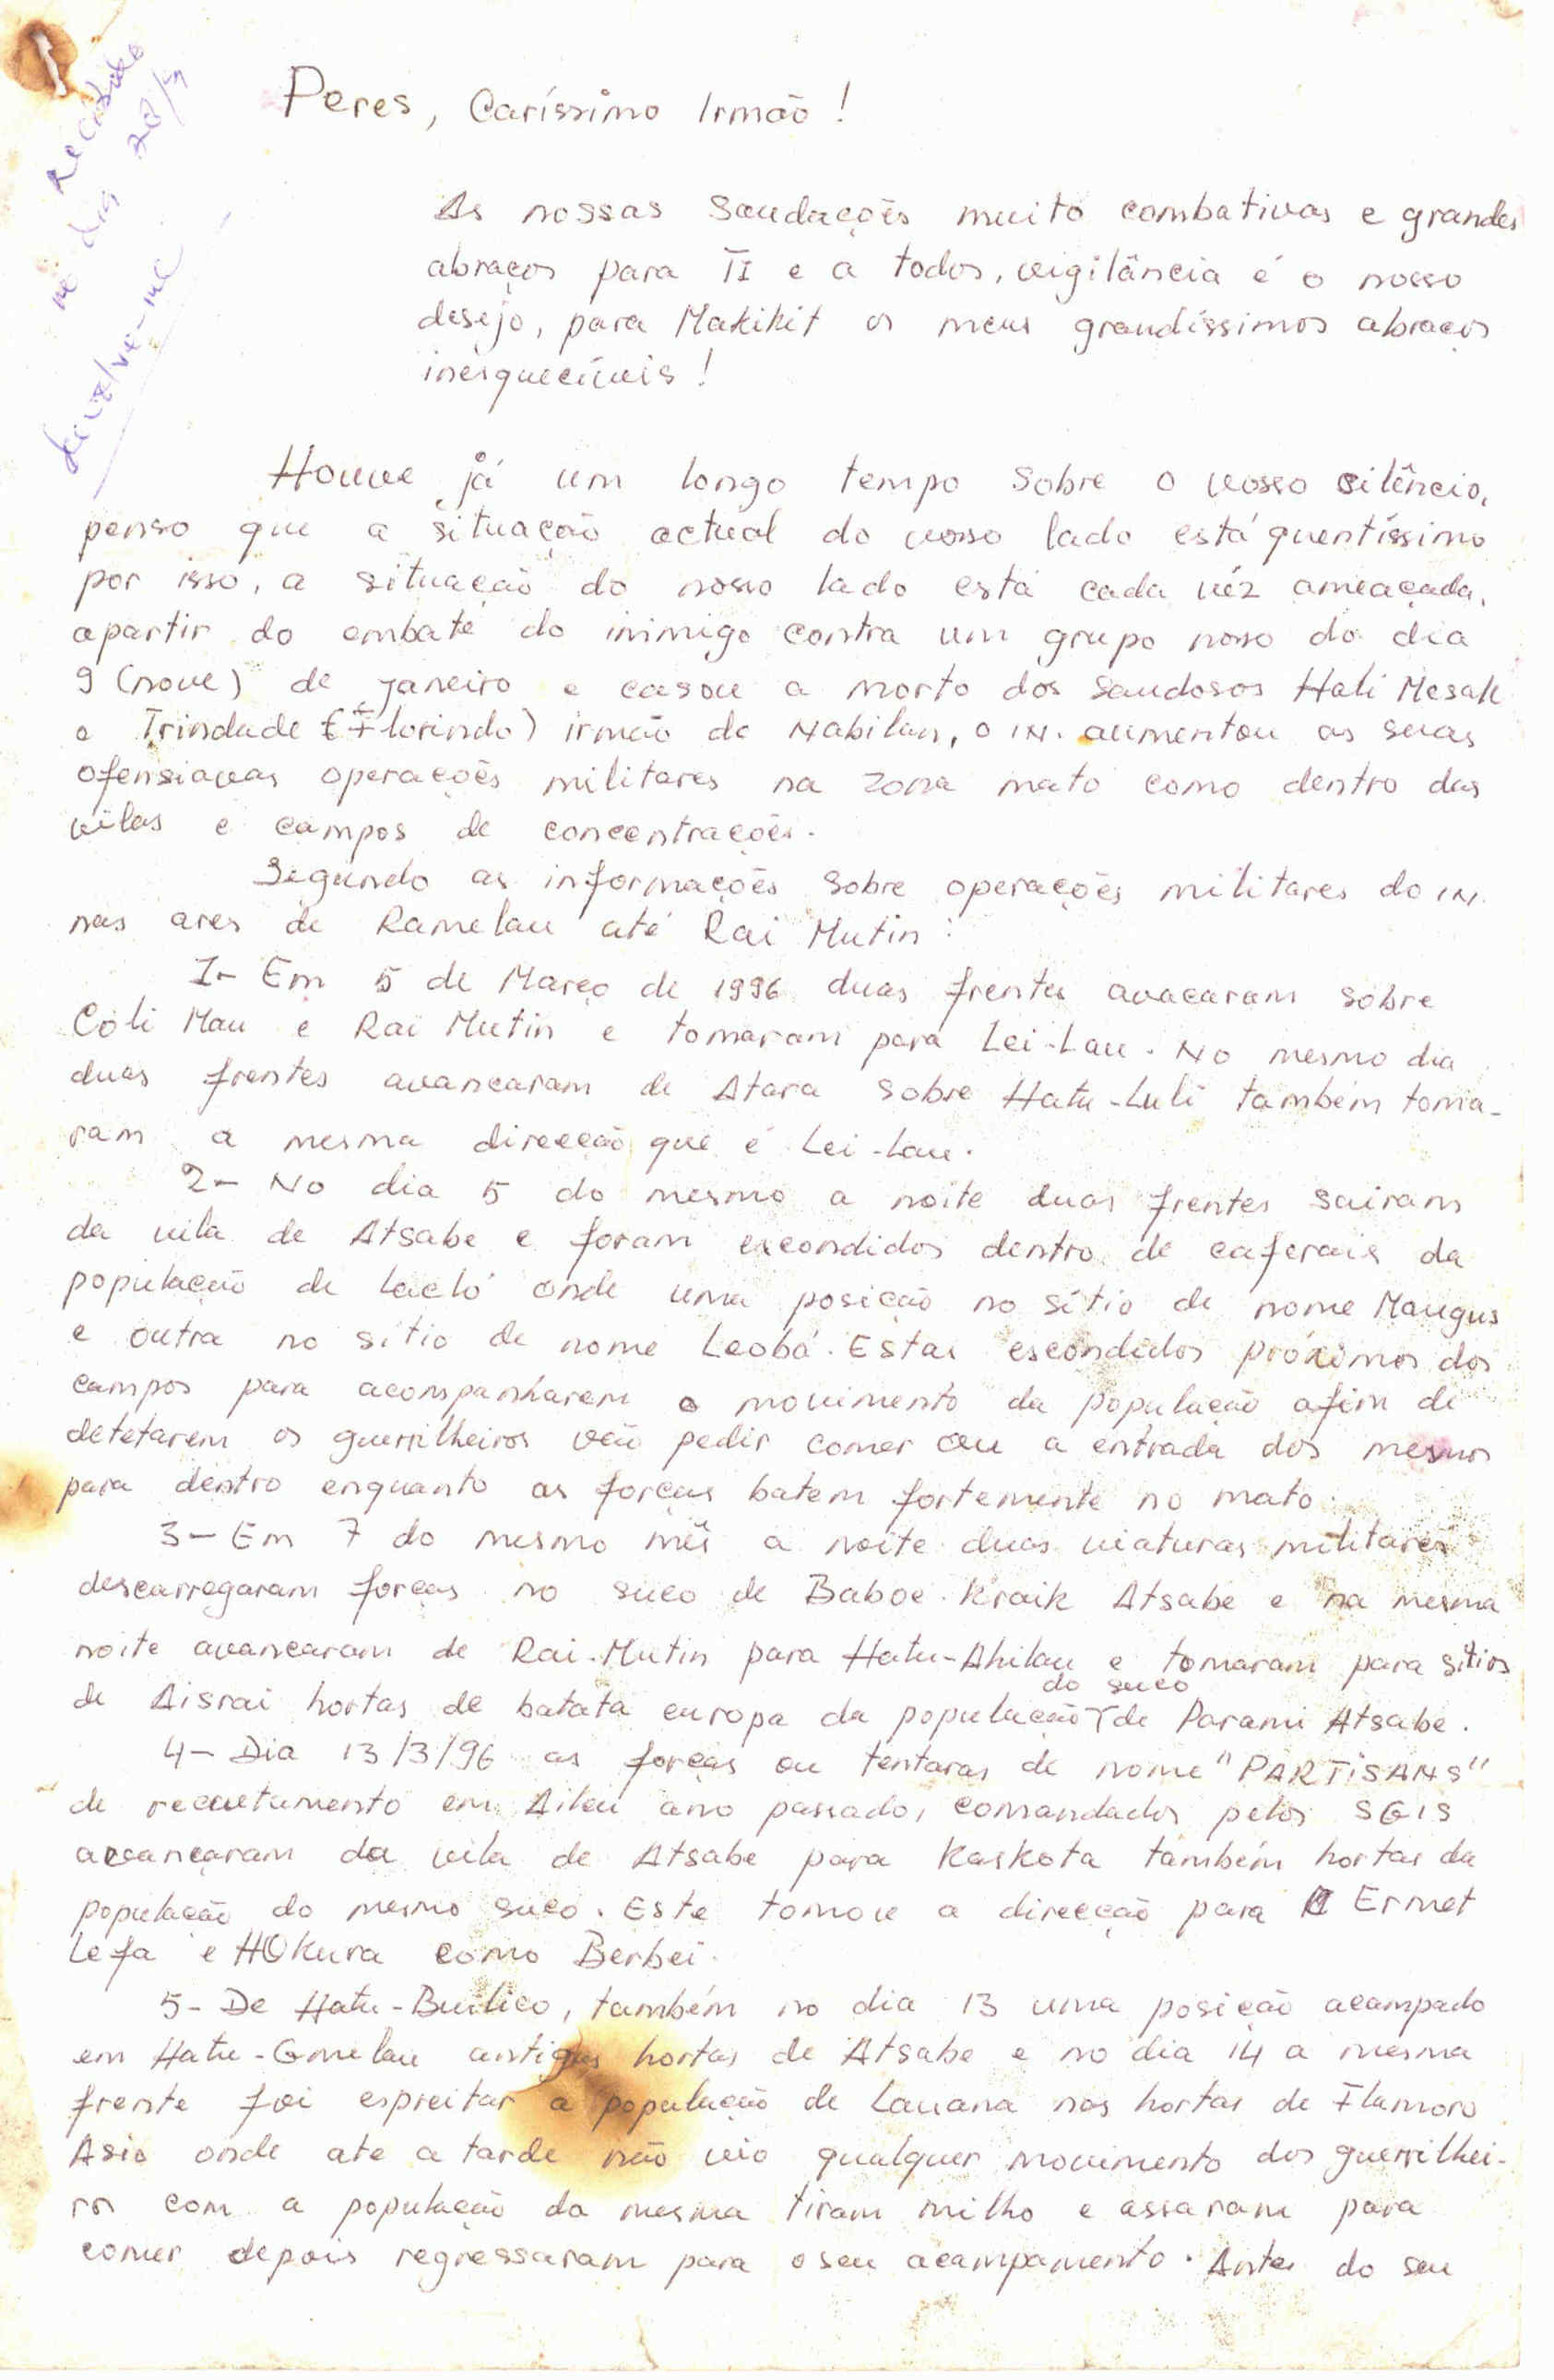 Recebido
no dia 28/3
devolve-me
Peres, Caríssimo Irmão!
As nossas Saudações muito combativas e grandes
abraços para TI e a todos, vigilância é o nosso
desejo, para Makikit os meus grandíssimos abraços
inesquecíveis!
Houve já um longo tempo sobre o vosso silêncio,
penso que a situação actual do vosso lado está quentíssimo
por isso, a situação do nosso lado está cada vêz ameaçada,
apartir do embate do inimigo contra um grupo nosso do dia
9 (nove) de Janeiro e casou a morto dos saudosos Hali Mesak
e Trindade (Florindo) irmão de Nabilan, o IN. aumentou as suas
ofensiavas operações militares na zona mato como dentro das
vilas e campos de concentrações.
Segundo as informações sobre operações militares do IN.
nas ares de Ramelau até Rai Mutin:
1- Em 5 de Março de 1996 duas frentes avacaram sobre
Coli Mau e Rai Mutin e tomaram para Lei-Lau. No mesmo dia
duas frentes avancaram de Atara sobre Hatu-Luli também toma-
ram a mesma direcção que é Lei-Lau.
2- No dia 5 do mesmo a noite duas frentes sairam
da vila de Atsabe e foram excondidos dentro de caferais da
população de Lacló onde uma posição no sítio de nome Maugus
e outra no sítio de nome Leobá. Estas escondidos próximos dos
campos para acompanharem o movimento da população afim de
detetarem os guerrilheiros vão pedir comer ou a entrada dos mesmos
para dentro enquanto as forças batem fortemente no mato.
3- Em 7 do mesmo mês a noite duas viaturas militares
descarregaram forças no suco de Baboe-Kraik Atsabe e na mesma
noite avancaram de Rai-Mutin para Hatu-Ahilau e tomaram para sitios
de Aisrai hortas de batata europa da população do suco de Parami Atsabe.
4- Dia 13/3/96 as forças ou tentaras de nome "PARTISANS"
de recrutamento em Aileu ano passado, comandados pelos SGIS
avançaram da vila de Atsabe para Kaskota também hortas da
população do mesmo suco. Este tomou a direcção para Ermet
Lefa e HOkura como Berbei.
5- De Hatu-Builico, também no dia 13 uma posição acampado
em Hatu-Gmelau antigas hortas de Atsabe e no dia 14 a mesma
frente foi espreitar a população de Lauana nas hortas de Flamoro
Asio onde ate a tarde não vio qualquer movimento dos guerrilhei-
ros com a população da mesma tiram milho e assaram para
comer depois regressaram para o seu acampamento. Antes do seu